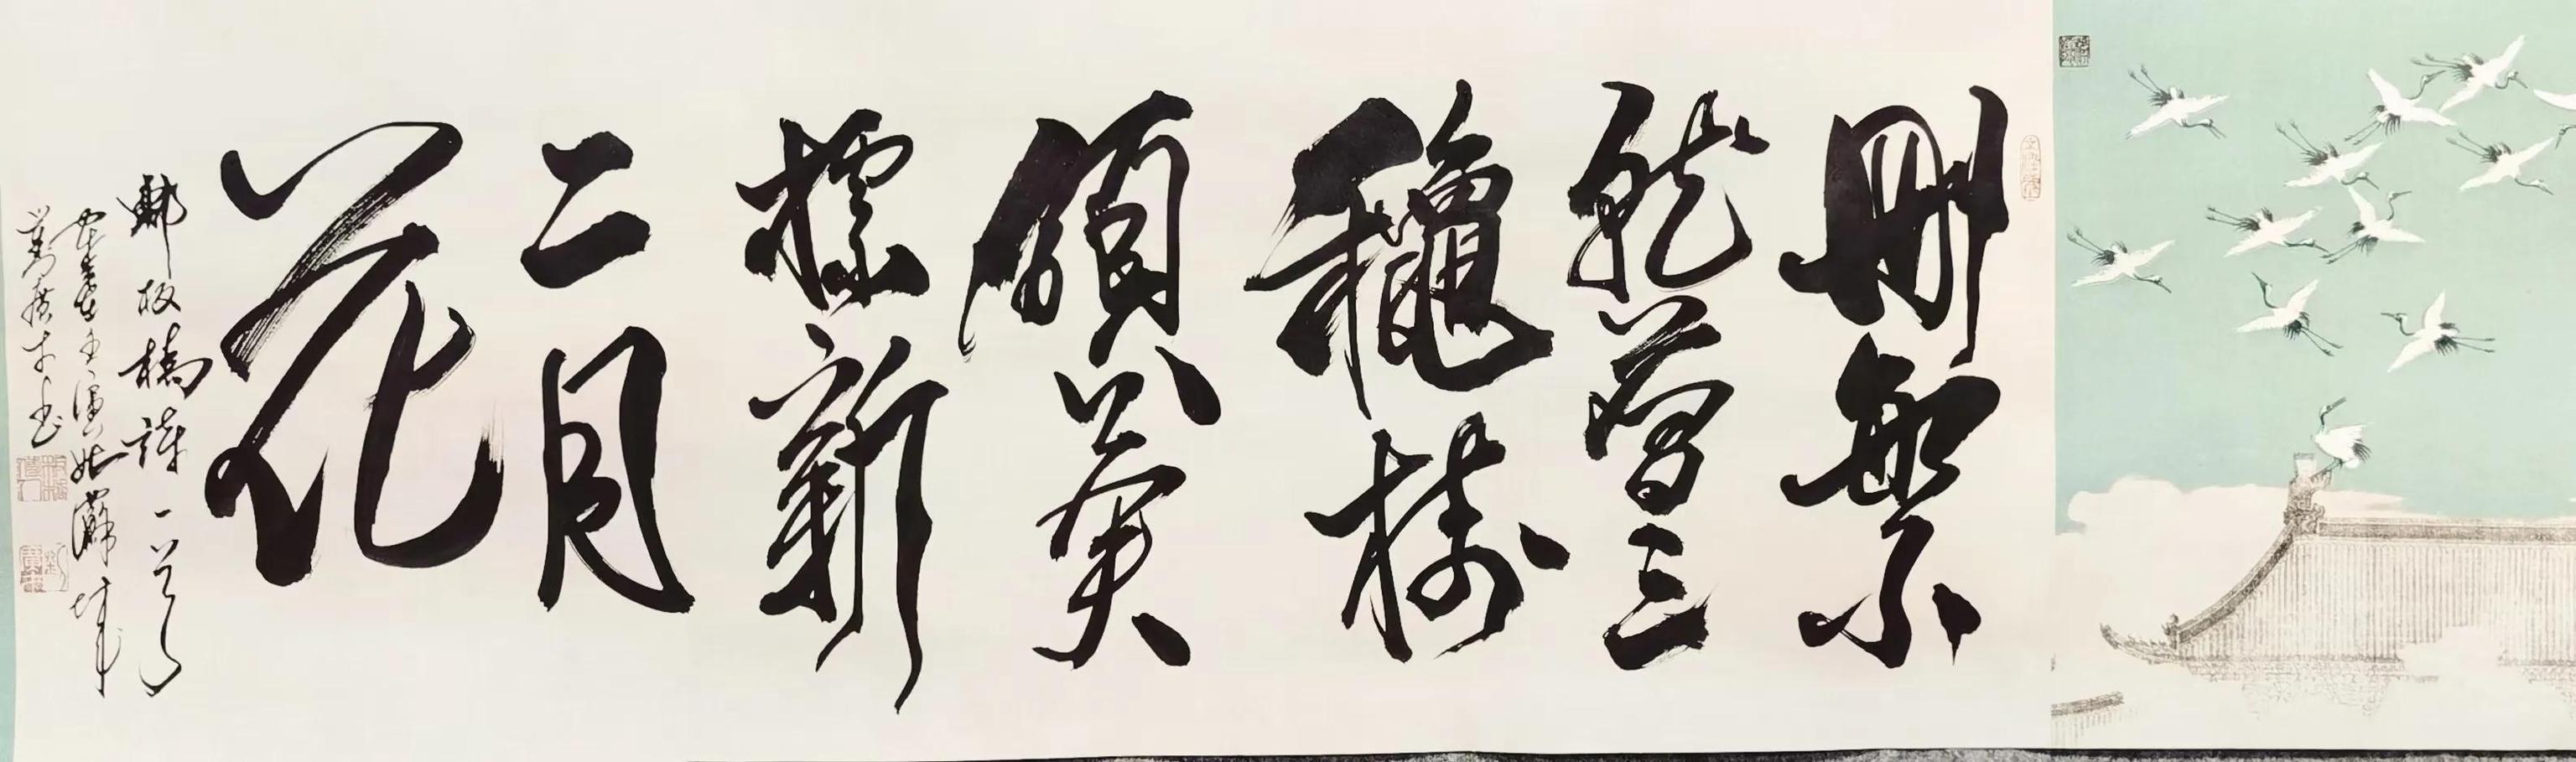 刪繁
就簡三
龝樹
領異
標新
二月
花
鄭板橋詩一首